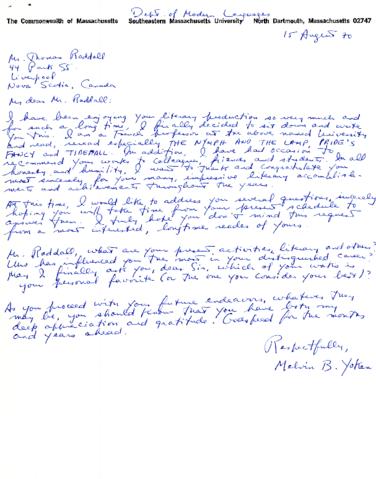 Dept. of Modern Languages
The Commonwealth of Massachusetts Southeastern Massachusetts University North Dartmouth, Massachusetts 02747
15 August 70
Mr. Thomas Raddall
44 Park St.
Liverpool
Nova Scotia, Canada
My dear Mr. Raddall:
I have been enjoying your literary production so very much and
for such a long time, I finally decided to sit down and write
you this. I am a French professor at the above named University
and read, reread especially THE NYMPH AND THE LAMP, PRIDE'S
FANCY and TIDEFALL. In addition, I have had occasion to
recommend your works to colleagues, friends and students. In all
honesty and humility, I want to thank and congratulate you
most sincerely for your many, impressive literary accomplish-
ments and achievements throughout the years.
At this time, I would like to address you several questions, sincerely
hoping you will take time from your present schedule to
answer them. I truly hope you don't mind this request
from a most interested, longtime reader of yours.
Mr. Raddall, what are your present activities, literary and others?
Who has influenced you the most in your distinguished career?
May I finally, ask you, dear Sir, which of your works is
your personal favorite (or the one you consider your best)?
As you proceed with your future endeavors, whatever they
may be, you should know that you have both my
deep appreciation and gratitude. Godspeed for the months
and years ahead.
Respectfully,
Melvin B. Yoken